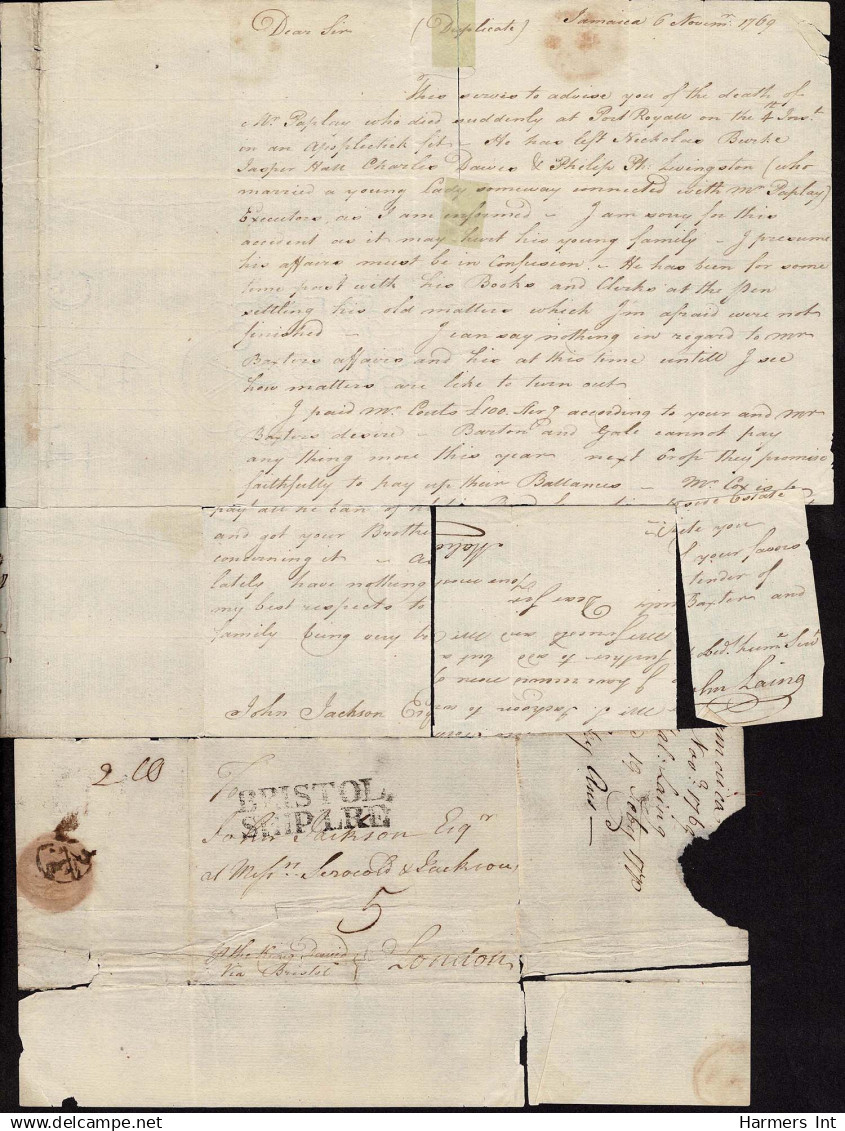 Dear Sir (Duplicate) Jamaica 6 Novemr. 1769
This serves to advise you of the death of
Mr. Paplay who died suddenly at Port Royall on the 4th Inst.
in an Apoplectick fit - He has left Nicholas Burke
Jasper Hall Charles Dawes & Philip Ph. Livingston (who
married a young Lady someway connected with Mr Paplay)
Executors as I am informed - I am sorry for this
accident as it may hurt his young family - I presume
his affairs must be in Confusion - He has been for some
time past with his Books and Clerks at the Pen
settling his old matters which I'm afraid were not
finished - I can say nothing in regard to Mr
Baxters affairs and his at this time untill I see
how matters are like to turn out
I paid Mr. Couts £100. Ster according to your and Mr
Baxters desire - Barton and Gale cannot pay
any thing more this year next Crop they promise
faithfully to pay up their Ballances - Mr. Cox is to
pay all he can of
Estate
and got your Brothe
concerning it -
lately have nothing
my best respects to
family being very
John Jackson Esqr
write you
your favors
tender of
Baxters and
Obedt. hum. Servt
John Laing
Dear Sir
Mr Serocold and Mr
further to add but a
I have received
Mr. J. Jackson to
2/10
To
BRISTOL
SHIP LRE
John Jackson Esqr
at Messrs. Serocold & Jackson
5
London
P the King David
Via Bristol
Jamaica
Novr. 1769
Laing
19 Feby 1770